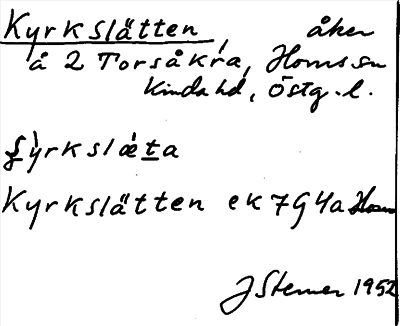 Kyrkslätten, åker
å 2 Torsåkra, Horns sn
Kinda hd, Östg. l.
Kyrkslätten ek 7G 4a Horn
J Sterner 1952